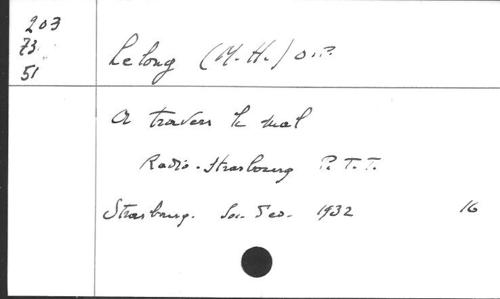 203
73
51
Lelong (M.-H.) O.P.
A travers le mal
Radio-Strasbourg P.T.T.
Strasbourg. 1932 16